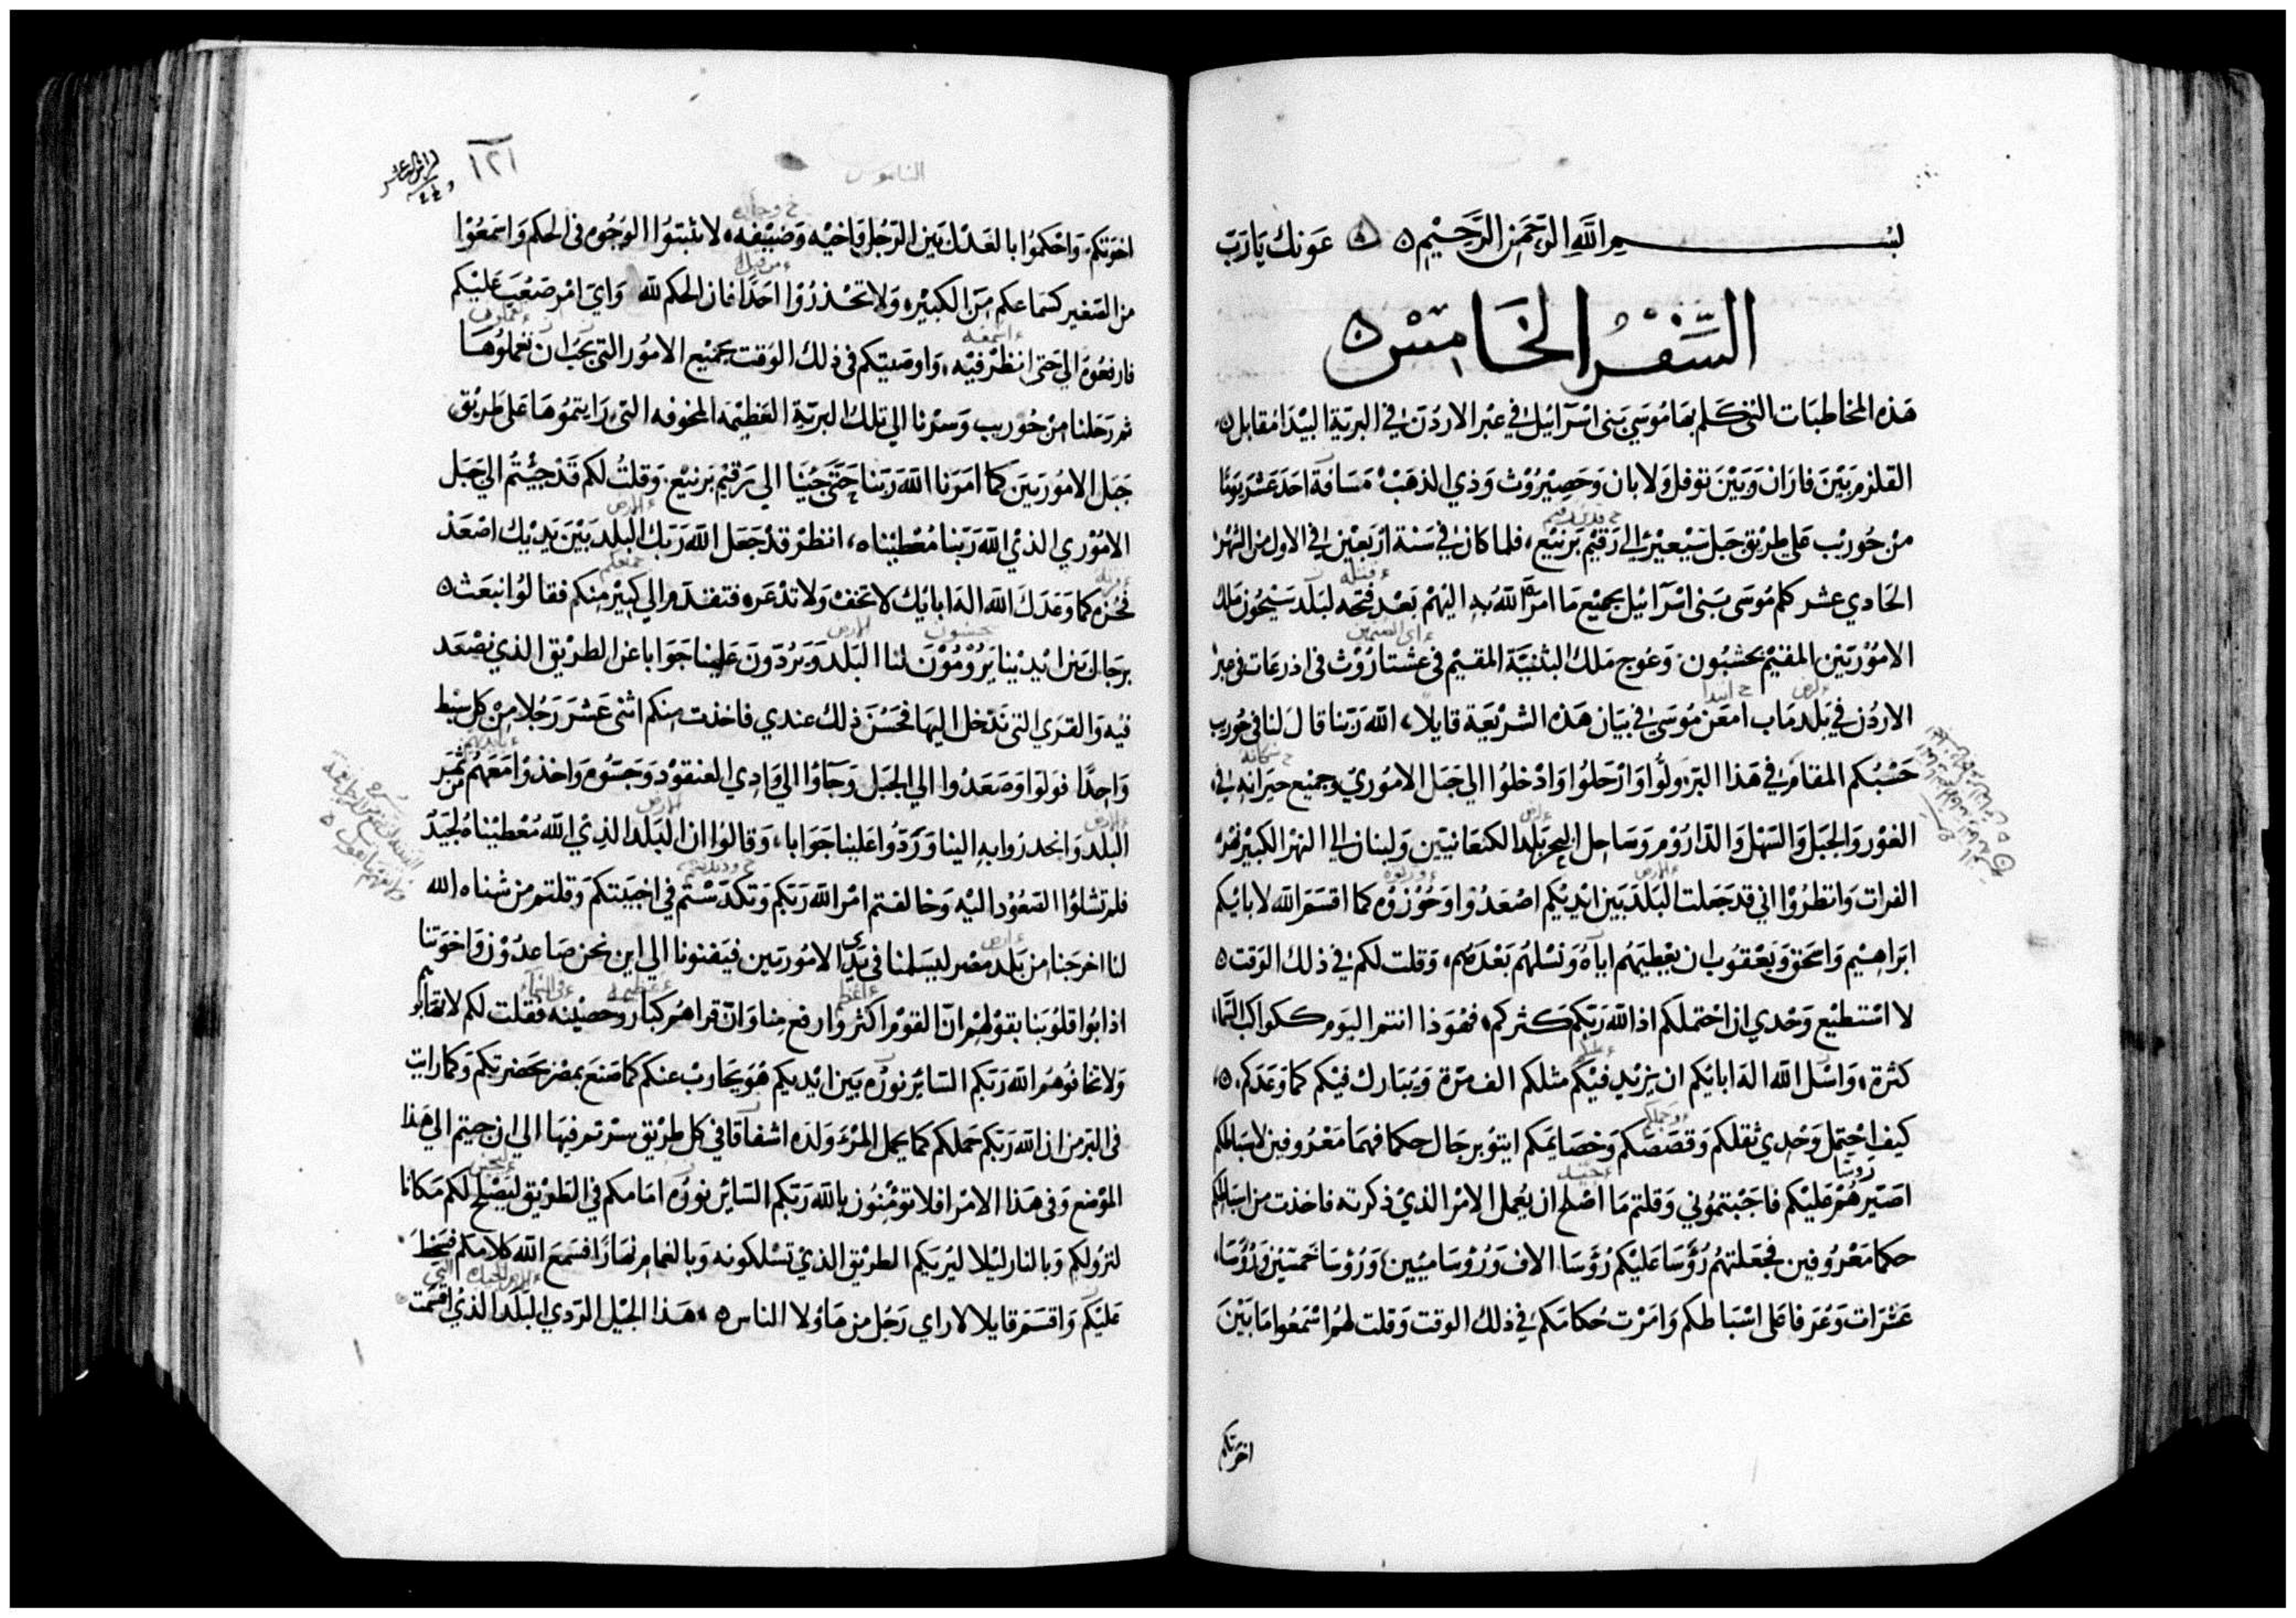 بسم الله الرحمن الرحيم ٥ ٥ عونك يا رب
السفر الخامس ٥
هذه المخاطبات التي كلم بها موسى بني اسرآئيل في عبر الاردن في البرية البيدا مقابل
القلزم بين فاران وبين توفل ولابان وحصيروث وذي الذهب مسافة احد عشر يوما
من حوريب على طريق جبل سيعير الى رقيم برنيع، فلما كان في سنة اربعين في الاول من الشهر
الحادي عشر كلم موسى بني اسرآئيل بجميع ما امر الله به اليهم بعد فتحه لبلد سيحون ملك
الاموريين المقيم بحشبون وعوج ملك البثنية المقيم في عشتاروث في اذرعات في عبر
الاردن في بلد ماب امعن موسى في بيان هذه الشريعة قايلا، الله ربنا قال لنا في حوريب
حسبكم المقام في هذا البر ولوا وارحلوا وادخلوا الى جبل الاموري وجميع جيرانه في
الغور والجبل والسهل والداروم وساحل البحر بلد الكنعانيين ولبنان الى النهر الكبير نهر
الفرات وانظروا اني قد جعلت البلد بين ايديكم اصعدوا وحوزوه كما اقسم الله لابائكم
ابراهيم واسحق ويعقوب ان يعطيهم اياه ونسلهم بعدهم، وقلت لكم في ذلك الوقت ٥
لا استطيع وحدي ان احتملكم اذ الله ربكم كثركم، فهوذا انتم اليوم ككواكب السماء
كثرة، واسل الله اله ابائكم ان يزيد فيكم مثلكم الف مرة ويبارك فيكم كما وعدكم ٥
كيف احتمل وحدي ثقلكم وقصصكم وخصايمكم ايتو برجال حكما فهما معروفين لاسباطكم
اصيرهم عليكم فاجبتموني وقلتم ما اصلح ان يعمل الامر الذي ذكرته فاخذت من اسباطكم
حكما معروفين فجعلتهم رؤسا عليكم رؤسا الاف ورؤسا ميين ورؤسا خمسين ورؤسا
عشرات وعرفا على اسباطكم وامرت حكامكم في ذلك الوقت وقلت لهم اسمعوا ما بين
اخوتكم
الناموس
١٢١
اخوتكم، واحكموا بالعدل بين الرجل واخيه وضيفه، لا تثبتوا الوجوه في الحكم واسمعوا
من الصغير كسماعكم من الكبير، ولا تحذروا احدا فان الحكم لله واي امر صعب عليكم
فارفعوه الي حتى انظر فيه، واوصيتكم في ذلك الوقت بجميع الامور التي يجب ان تعملوها
ثم رحلنا من حوريب وسرنا الى تلك البرية العظيمه المخوفه التي رايتموها على طريق
جبل الاموريين كما امرنا الله ربنا حتى جينا الى رقيم برنيع، وقلت لكم قد جيتم الى جبل
الاموري الذي الله ربنا معطيناه، انظر قد جعل الله ربك البلد بين يديك اصعد
فحزه كما وعدك الله اله ابايك لا تخف ولا تذعر، فتقدم الي كبير منكم فقالوا نبعث ٥
برجال بين ايدينا يرومون لنا البلد ويردون علينا جوابا عن الطريق الذي نصعد
فيه والقرى التي ندخل اليها فحسن ذلك عندي فاخذت منكم اثني عشر رجلا من كل سبط
واحدا فولوا وصعدوا الى الجبل وجآوا الى وادي العنقود وجسوه واخذوا معهم من ثمر
البلد وانحدروا به الينا وردوا علينا جوابا، وقالوا ان البلد الذي الله معطيناه لجيد
فلم تشاؤا الصعود اليه وخالفتم امر الله ربكم وتكدستم في اخبيتكم وقلتم من شناه الله
لنا اخرجنا من بلد مصر ليسلمنا في يدي الاموريين فيفنونا الى اين نحن صاعدون واخوتنا
اذابوا قلوبنا بقولهم ان القوم اكثر وارفع منا وان قراهم كبار وحصينه فقلت لكم لا تهابوهم
ولا تخافوهم الله ربكم الساير نوره بين ايديكم هو يحارب عنكم كما صنع بمصر بحضرتكم وكما رايت
في البر من ان الله ربكم حملكم كما يحمل المرء ولده اشفاقا في كل طريق سرتم فيها الى ان جيتم الى هذا
الموضع وفي هذا الامر افلا تؤمنون بالله ربكم الساير نوره امامكم في الطريق ليصلح لكم مكانا
لنزولكم وبالنار ليلا ليريكم الطريق الذي تسلكونه وبالغمام نهارا فسمع الله كلامكم فسخط
عليكم واقسم قايلا لا راي رجل من هاولا الناس ٥ هذا الجيل الردي البلد الذي اقسمت